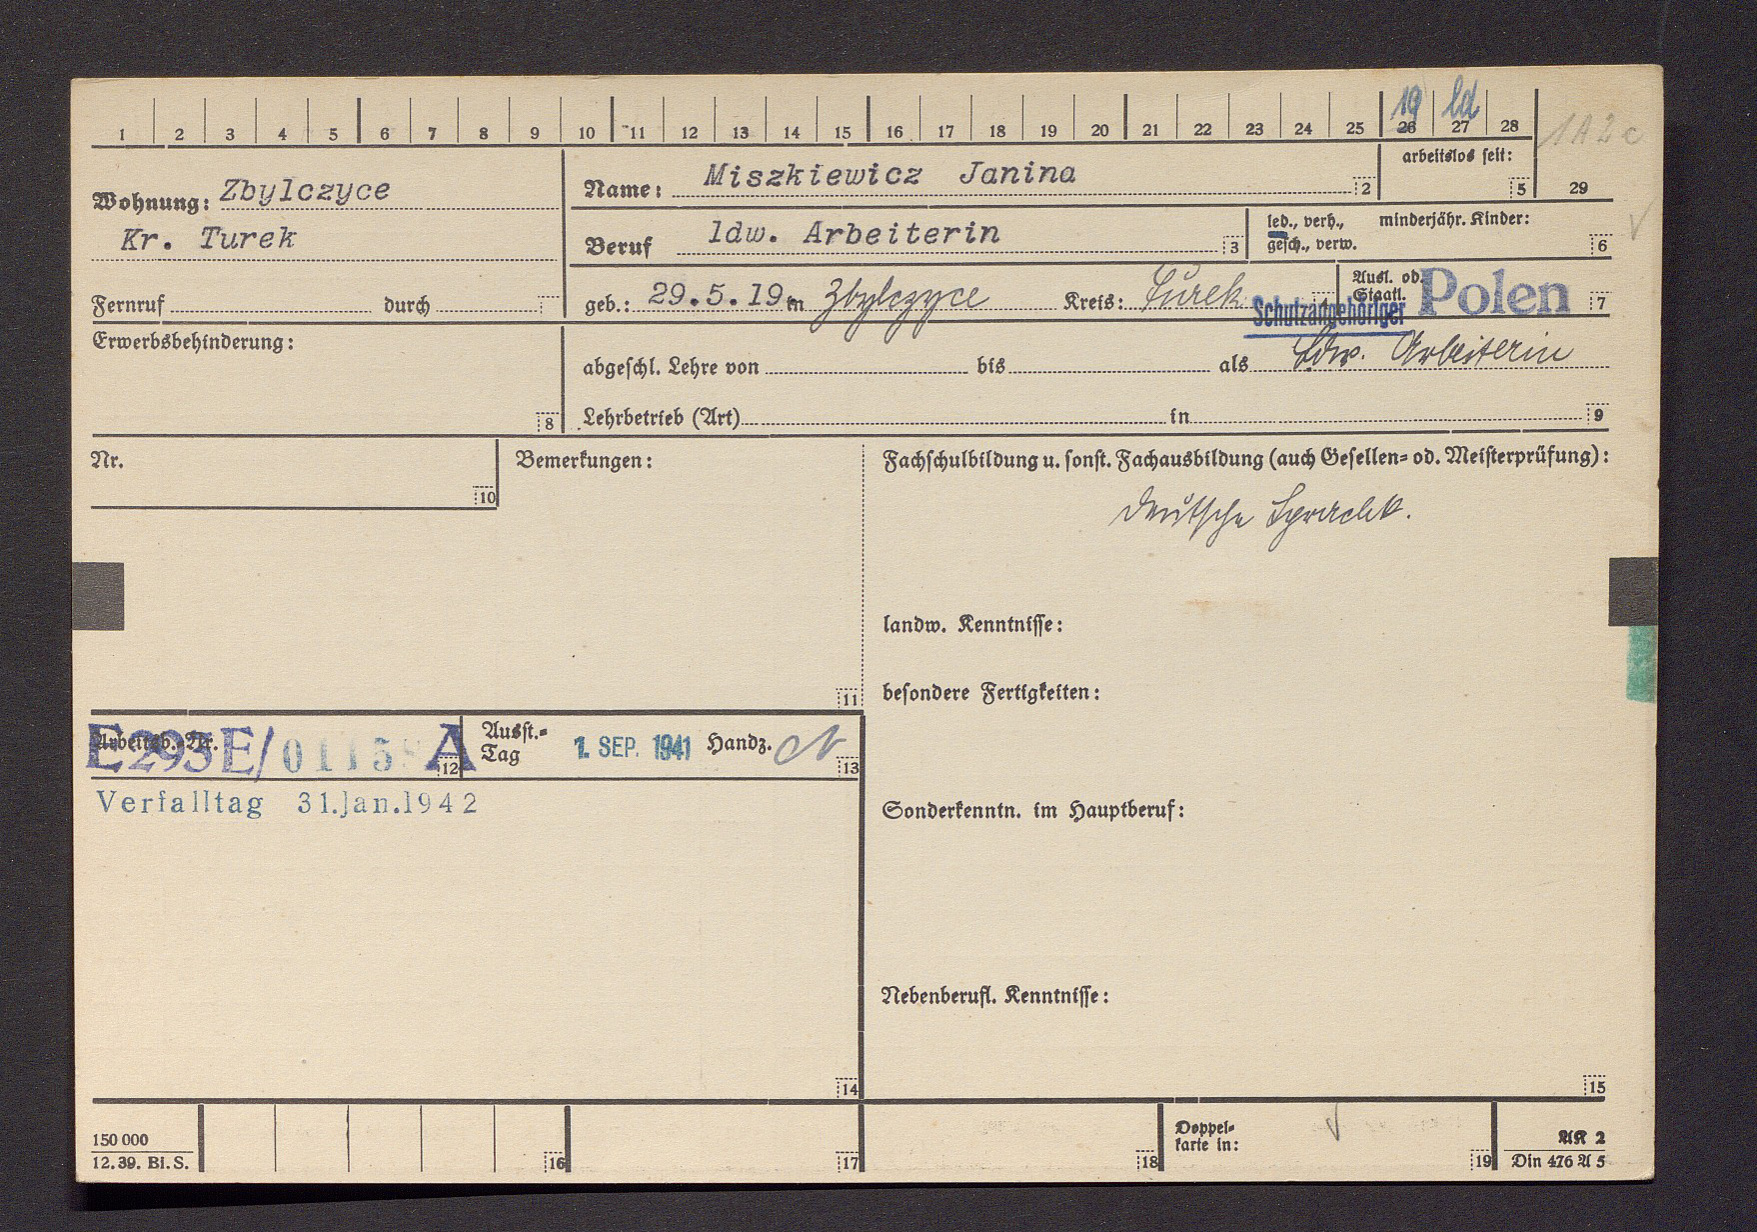 1 2 3 4 5 6 7 8 9 10 11 12 13 14 15 16 17 18 19 20 21 22 23 24 25 26 27 28
19 ld
1A2c
29
Wohnung: Zbylczyce
Kr. Turek
Name: Miszkiewicz Janina 2
arbeitslos seit: 5
Beruf ldw. Arbeiterin 3
led., verh., minderjähr. Kinder:
gesch., verw. 6
Fernruf durch
geb.: 29.5.19. in Zbylczyce Kreis: Turek 4
Ausl. od. Staatl. Polen 7
Schutzangehöriger
Erwerbsbehinderung: 8
abgeschl. Lehre von bis als Ldw. Arbeiterin
Lehrbetrieb (Art) in 9
Nr. 10
Bemerkungen: 11
Fachschulbildung u. sonst. Fachausbildung (auch Gesellen- od. Meisterprüfung):
Deutsche Sprachk.
landw. Kenntnisse:
besondere Fertigkeiten:
Arbeitsb.-Nr. 12
E293E/ 01158 A
Ausst.-Tag 1. SEP. 1941 Handz. 13
Verfalltag 31.Jan.1942
Sonderkenntn. im Hauptberuf:
Nebenberufl. Kenntnisse:
14
15
150 000
12. 39. Bi. S.
16
17
18
Doppel-
karte in: 19
AK 2
Din 476 A 5